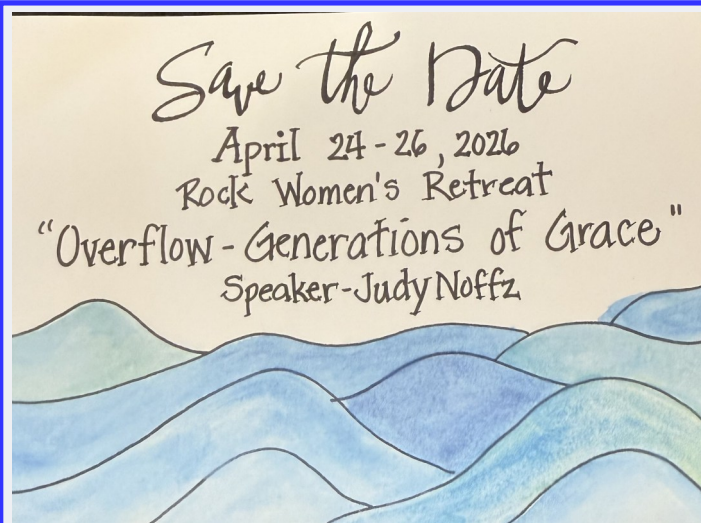 Save the Date
April 24-26, 2026
Rock Women's Retreat
"Overflow - Generations of Grace"
Speaker - Judy Noffz